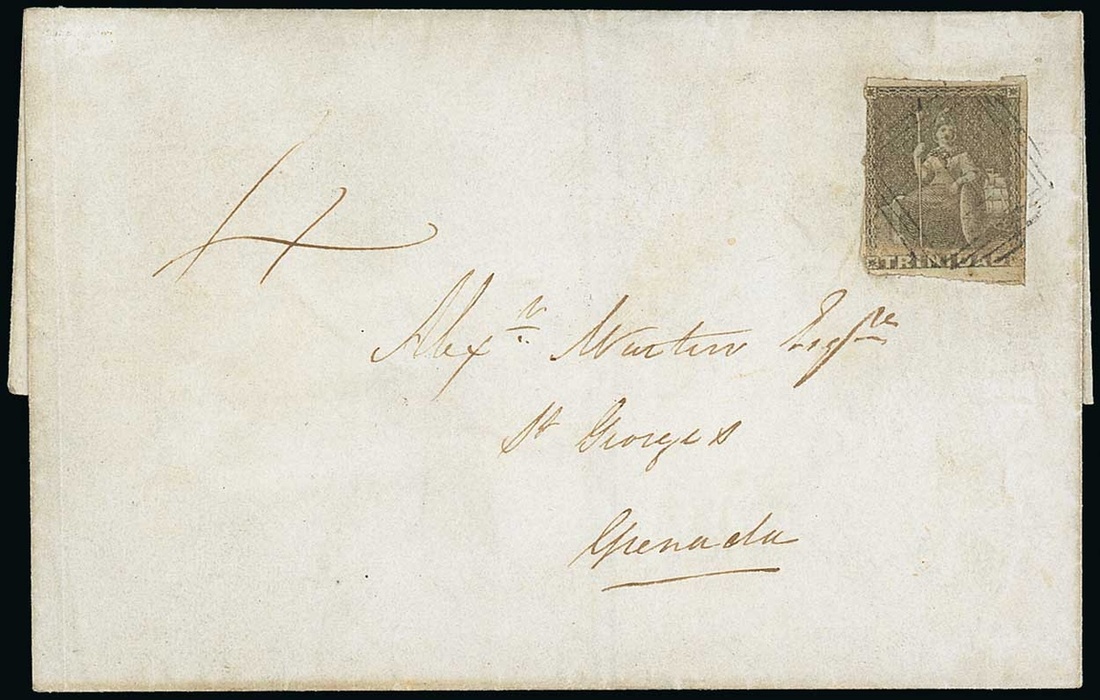 TRINIDAD
4
Alexr. Martin Esqre
St Georges
Grenada